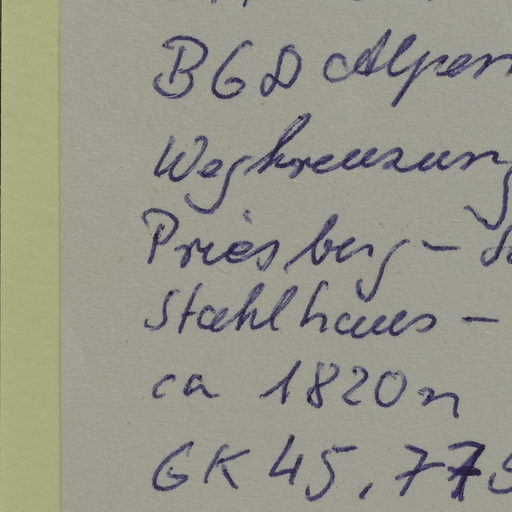 BGD Alpen
Wegkreuzung
Priesberg –
Stahlhaus –
ca 1820 m
GK 45.77